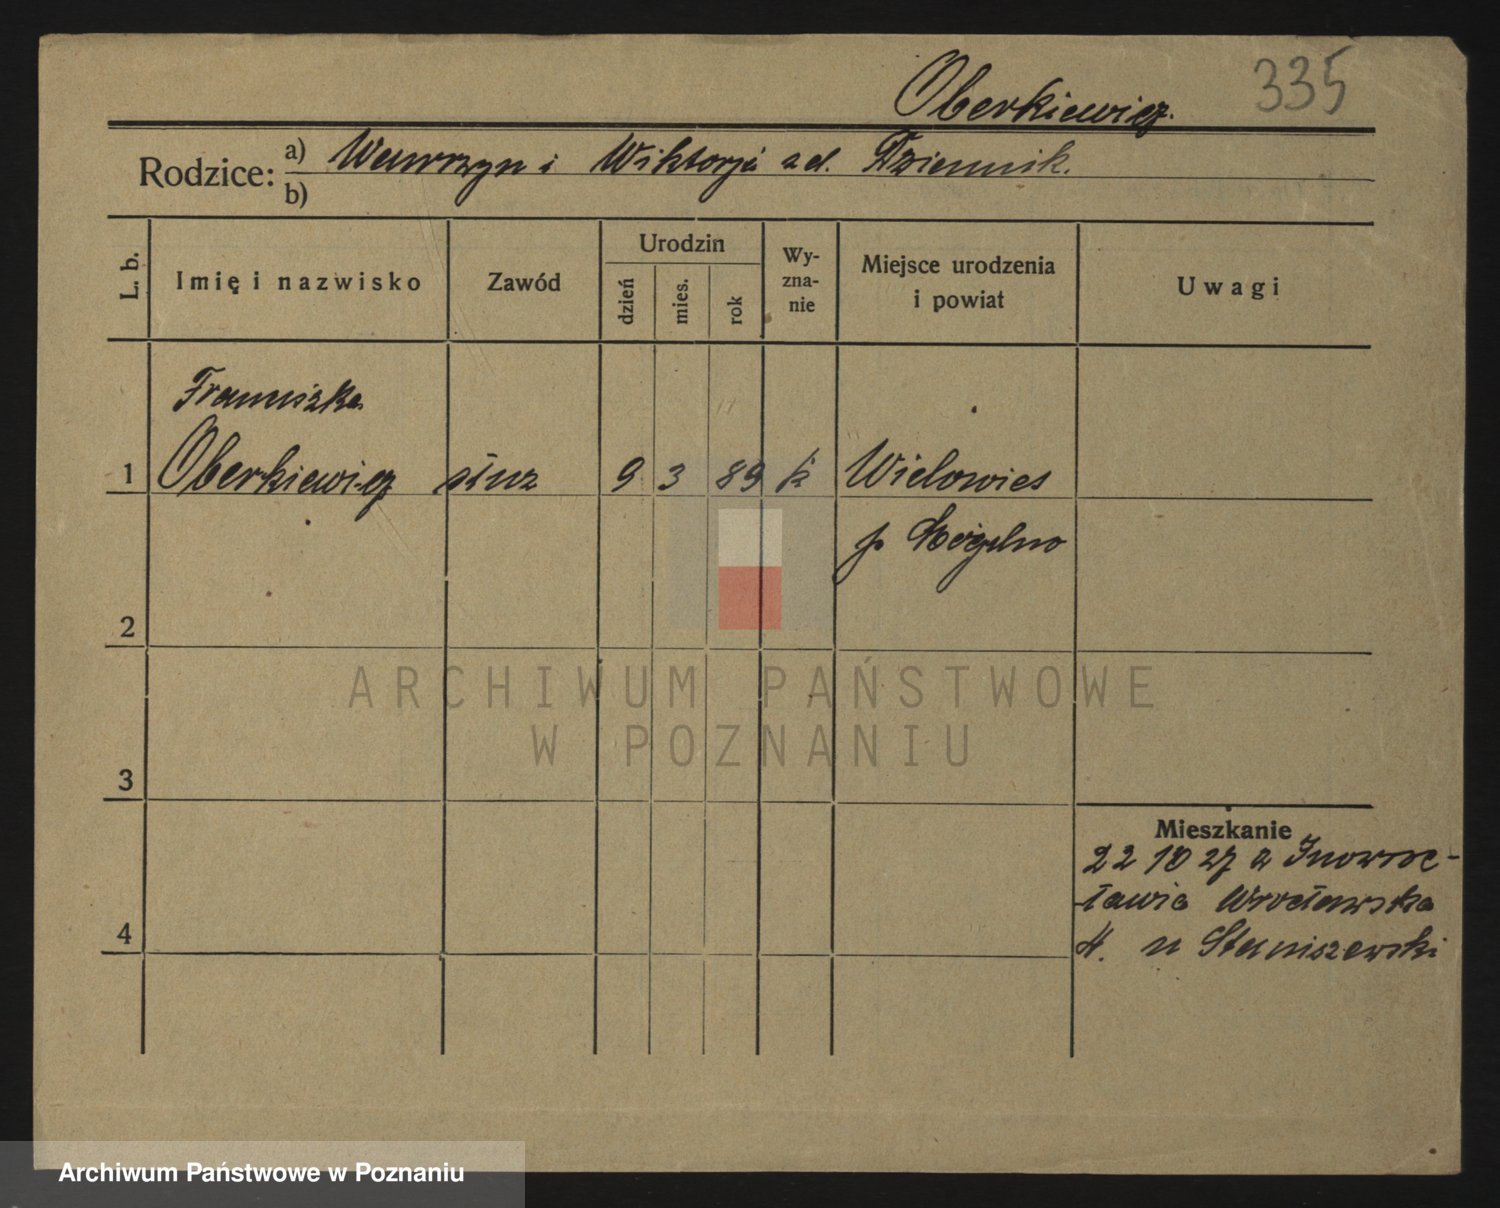 Oberkiewicz. 335
Rodzice: a) Wawrzyn i Wiktorja zd. Dziennik.
b)
L. b. Imię i nazwisko Zawód Urodzin dzień mies. rok Wyznanie Miejsce urodzenia i powiat Uwagi
Franciszka
1 Oberkiewicz służ 9 3 89 k Wielowies
p Mogilno
2
3
Mieszkanie
22 10 27 z Inowroc-
ławia Wrocławska
4. u Staniszewski
4
ARCHIWUM PAŃSTWOWE
W POZNANIU
Archiwum Państwowe w Poznaniu